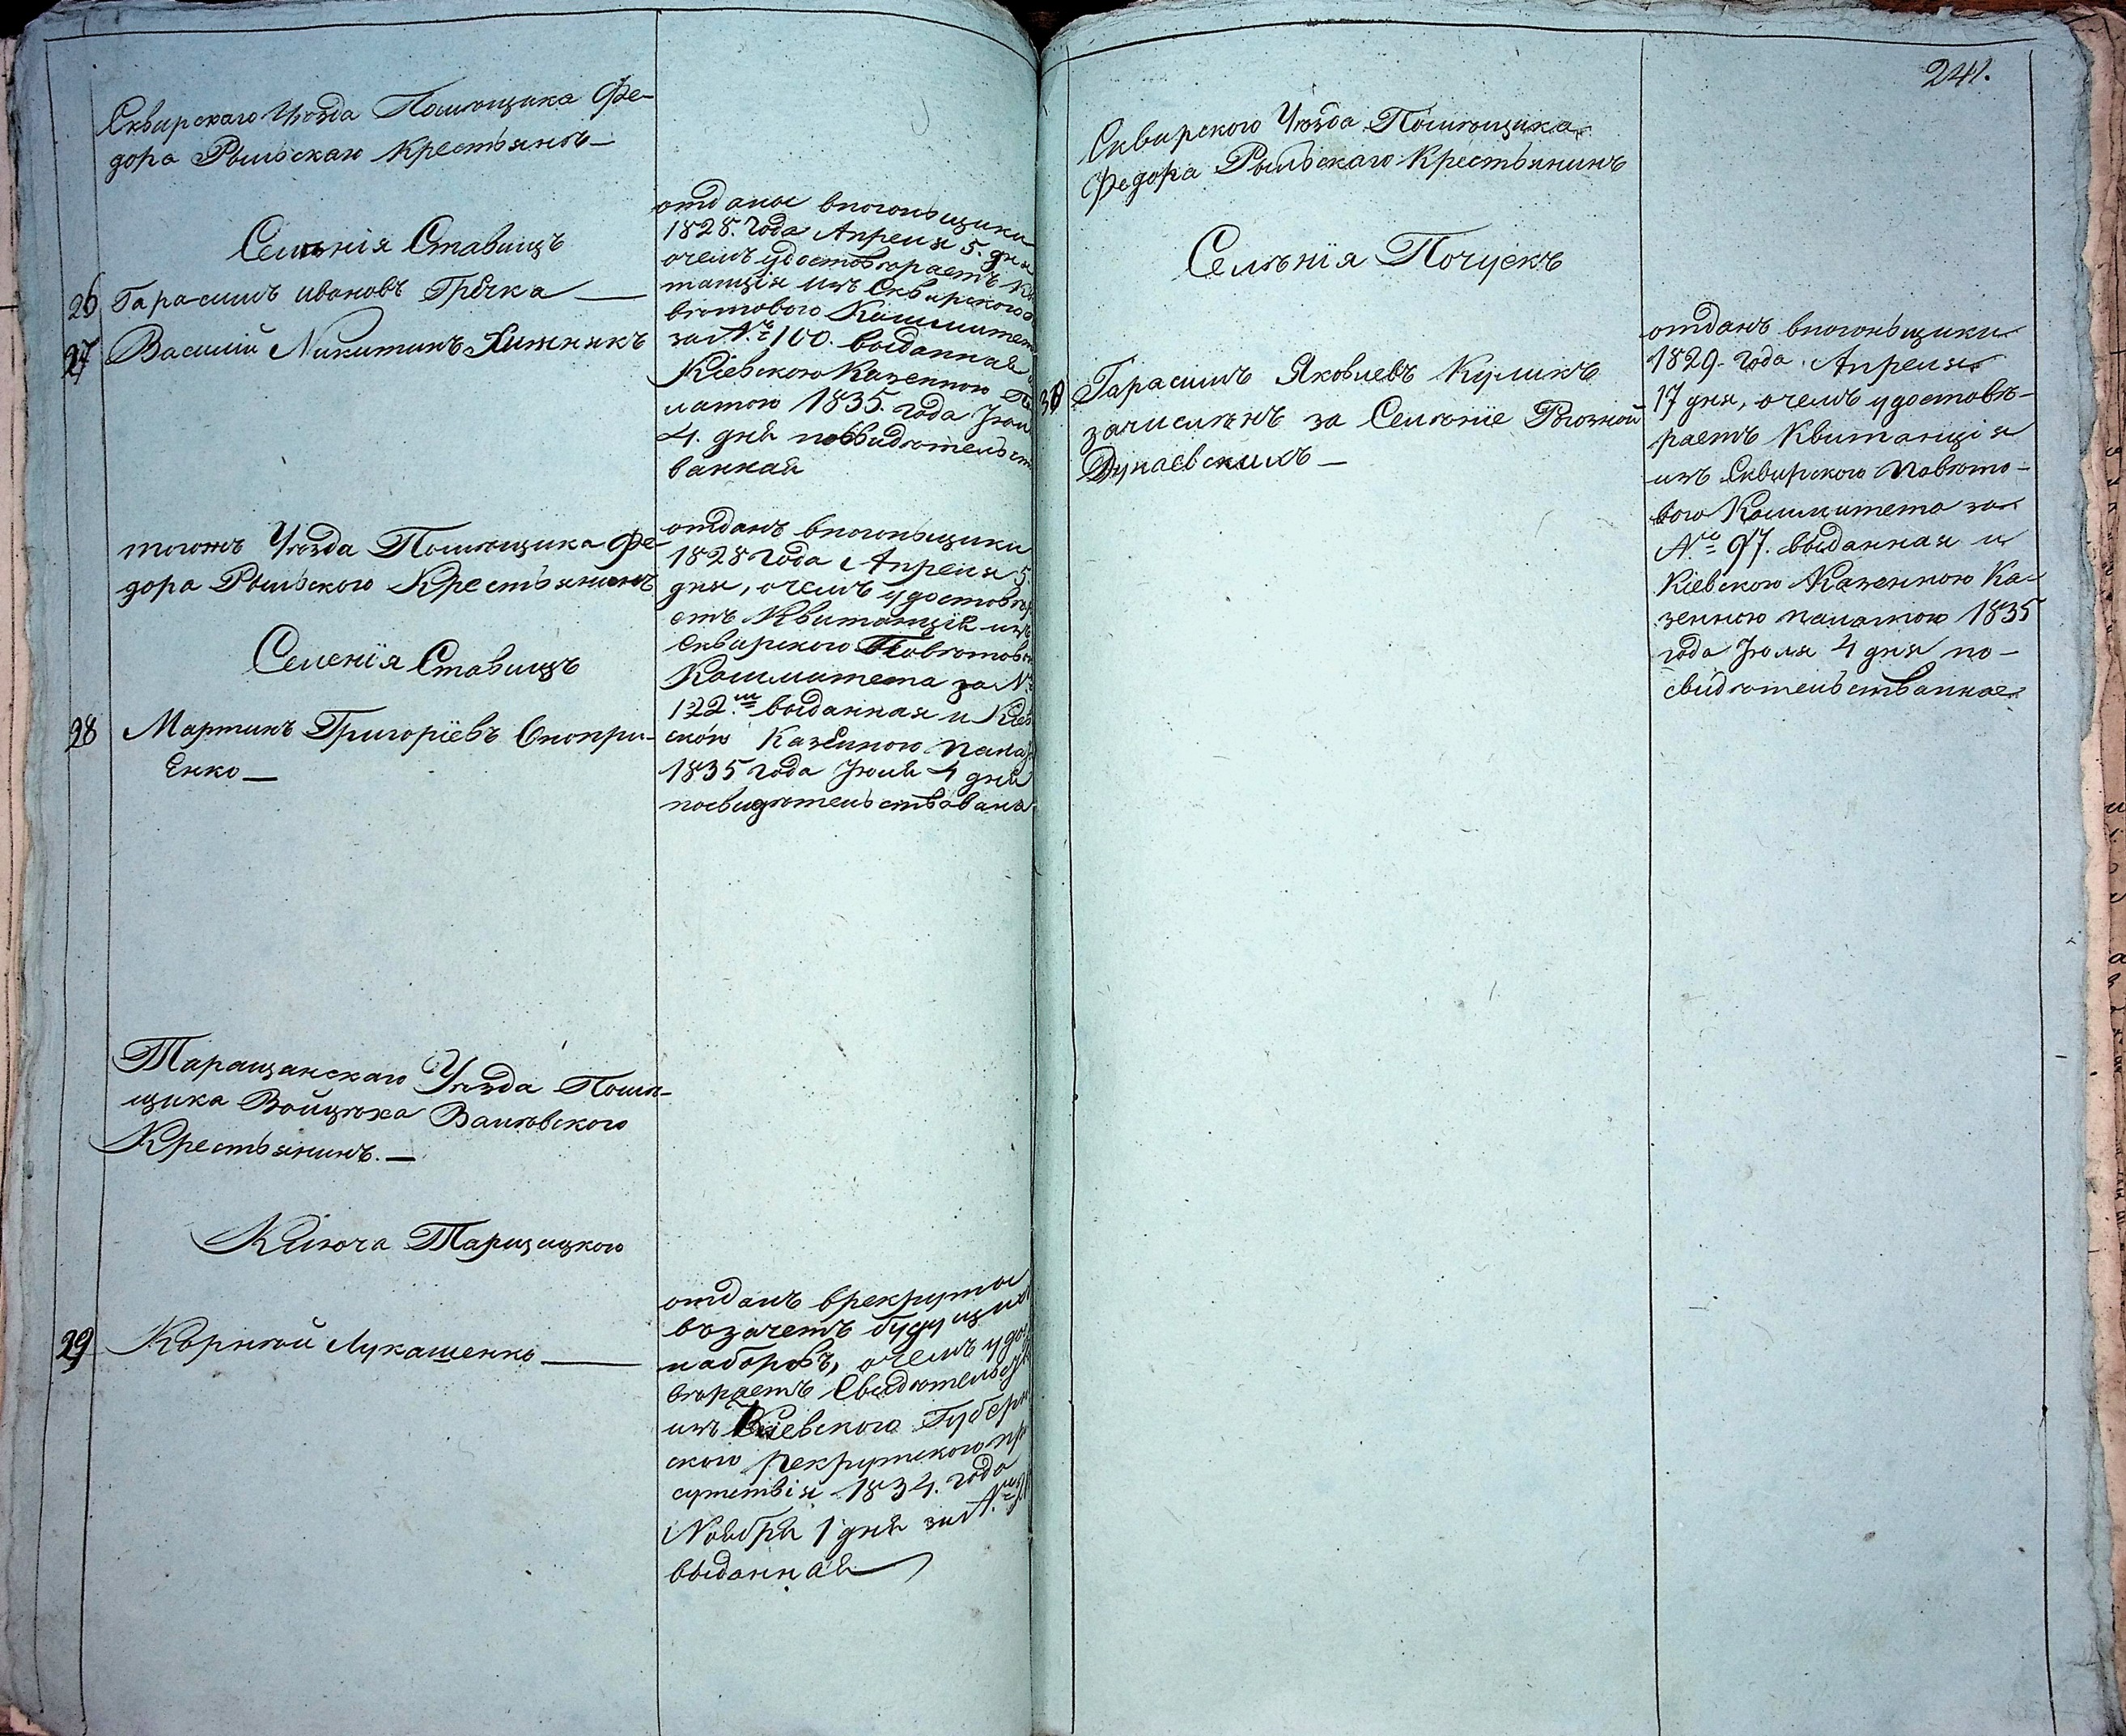 Сквирскаго Уѣзда Помѣщика Фе-
дора Рыльскаго Крестьяновъ —
Селѣнія Ставищъ
26 Гарасимъ ивановъ Гречка —
27 Василій Никитинъ Хижнякъ
отданы впогоньщики
1828. года Апреля 5. дня
очемъ удостовѣраетъ Кви
танція изъ Сквирского По
вѣтового Коммитета
за №. 100. выданная и
Кіевскою Казенною Па
латою 1835. года Июля
4. дня посвидѣтельст
ванная
тогожъ Уѣзда Помѣщика Фе-
дора Рыльского Крестьянинъ
Селенія Ставищъ
28 Мартинъ Григоріевъ Онопри-
Енко —
отданъ впогоньщики
1828 года Апреля 5.
дня, очемъ удостовѣра
етъ Квитанція изъ
Сквирского Повѣтового
Коммитета за №
122. выданная и Кіев
скою Казенною Палат
1835 года Июля 4 дня
посвидѣтельствована
Таращанскаго Уѣзда Помѣ-
щика Войцѣха Валѣвского
Крестьянинъ. —
Ключа Таращицкого
29 Корнѣй Лукашенко —
отданъ врекруты
возачетъ будущихъ
наборовъ, очемъ удосто
вѣраетъ Свидѣтельство
изъ Кіевского Губерн
ского рекрутского при
сутствія 1834. года
Ноября 1 дня за №
выданная
241.
Сквирского Уѣзда Помѣщика
Федора Рыльскаго Крестьянинъ
Селѣнія Почуекъ
30 Гарасимъ Яковлевъ Куликъ
зачисленъ за Селѣніе Рогозной
Дунаевскихъ —
отданъ впогоньщики
1829. года. Апреля
17 дня, очемъ удостовѣ-
раетъ Квитанція
изъ Сквирского Повѣто-
вого Коммитета за
№. 97. выданная и
Кіевскою Казенною Ка-
зенною палатою 1835
года Июля 4 дня по-
свидѣтельствванная